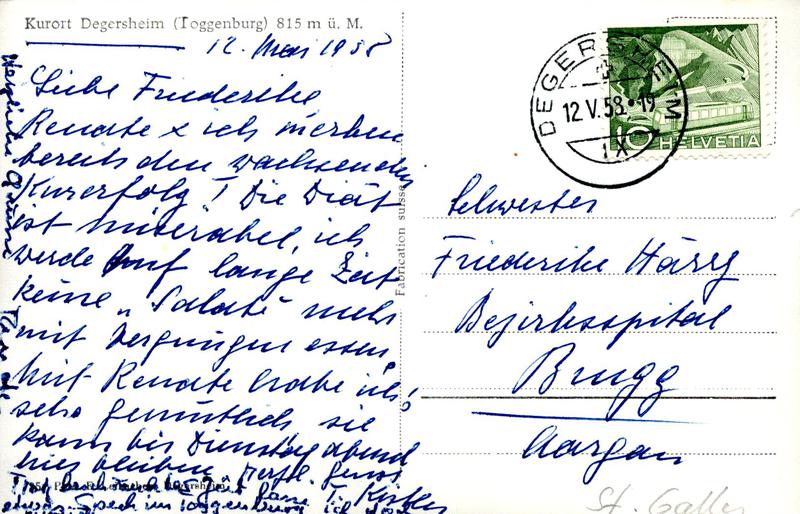 Kurort Degersheim (Toggenburg) 815 m ü. M.
12. Mai 1958
Liebe Friederike
Renate & ich merken
bereits den wachsenden
Kurerfolg! Die Diät
ist miserabel, ich
werde auf lange Zeit
keine „Salate" mehr
mit Vergnügen essen,
Mit Renate habe ich's
sehr gemütlich, sie
kann bis Dienstag abend
hier bleiben. Herzl. Gruss
Herzliche Grüsse
Renate
Fabrication suisse
DEGERSHEIM
12.V.58.-19
IX
10
HELVETIA
Schwester
Friederike Härry
Bezirksspital
Brugg
Aargau
St. Gallen